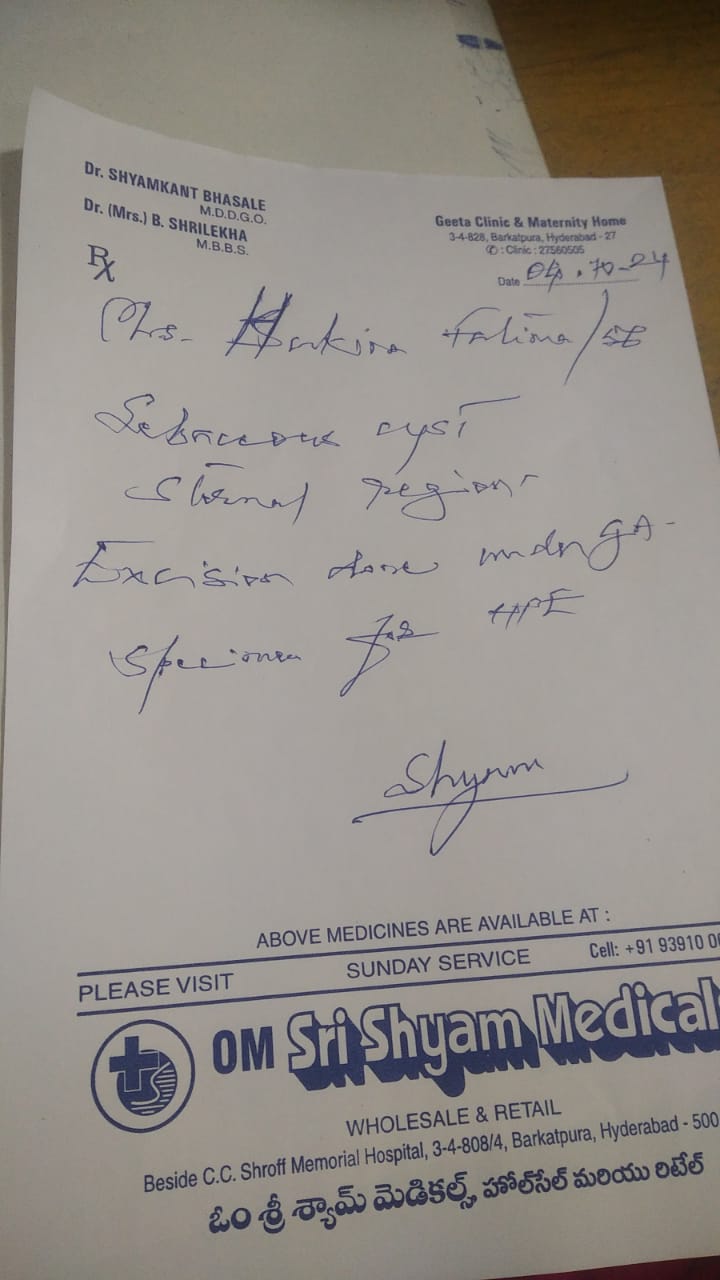 Dr. SHYAMKANT BHASALE
M.D.D.G.O.
Dr. (Mrs.) B. SHRILEKHA
M.B.B.S.
Geeta Clinic & Maternity Home
3-4-828, Barkatpura, Hyderabad - 27
✆ : Clinic : 27560505
Rx
Date 04.10-24
Mrs. Fatima /
Sebaceous cyst
Sternal region
Excision done under GA-
Specimen for HPE
Shyam
ABOVE MEDICINES ARE AVAILABLE AT :
PLEASE VISIT SUNDAY SERVICE Cell: +91 93910
OM Sri Shyam Medical
WHOLESALE & RETAIL
Beside C.C. Shroff Memorial Hospital, 3-4-808/4, Barkatpura, Hyderabad - 500
ఓం శ్రీ శ్యామ్ మెడికల్స్, హోల్‌సేల్ మరియు రిటేల్